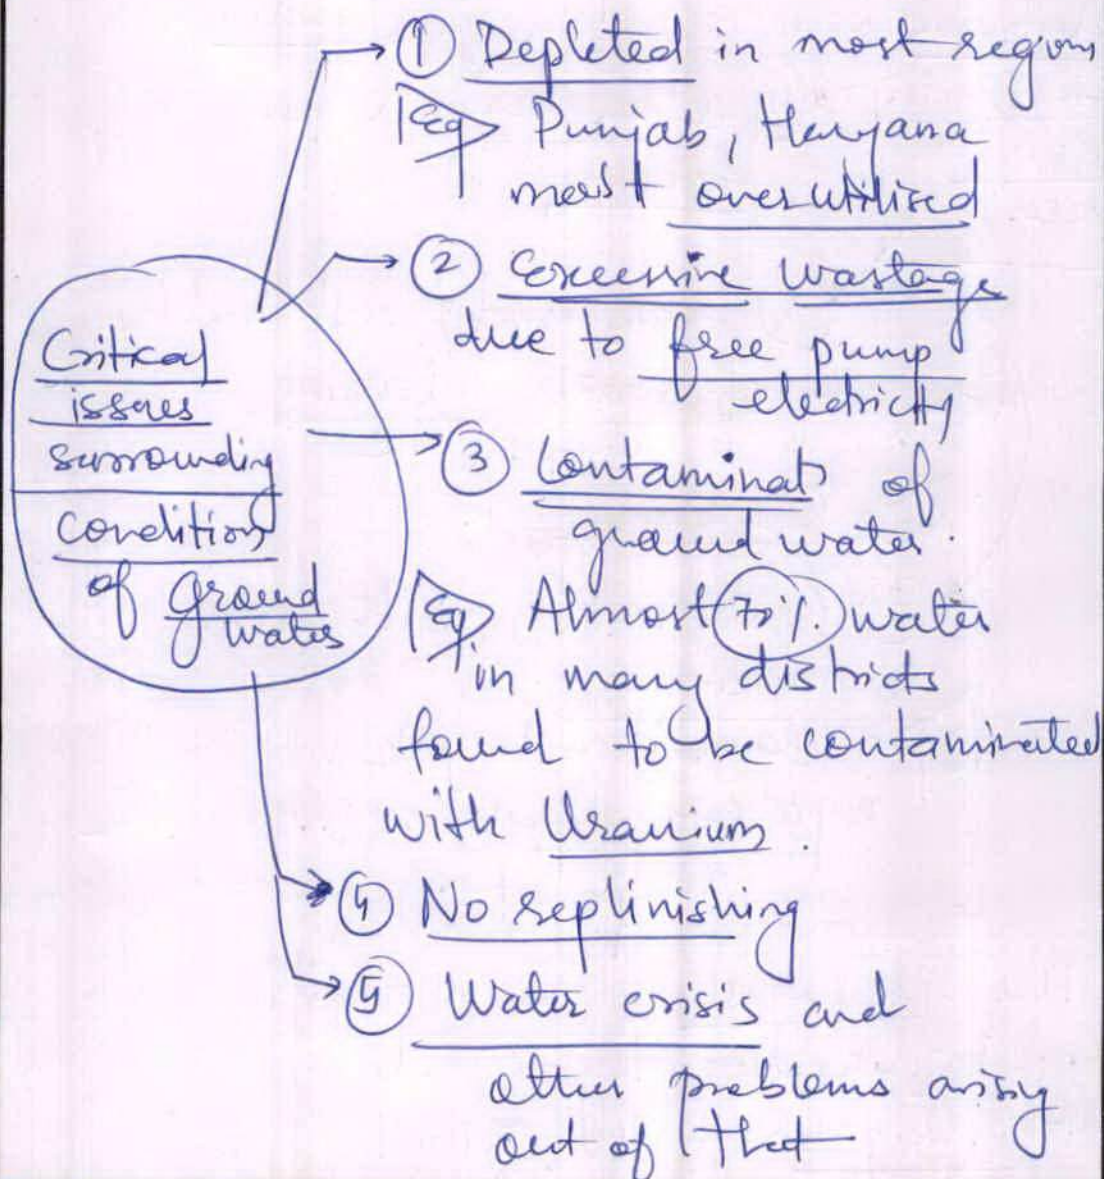 Critical
issues
surrounding
condition
of ground
water
① Depleted in most regions
Eg Punjab, Haryana
most overutilised
② Excessive wastage
due to free pump
electricity
③ Contaminatn of
ground water.
Eg Almost 70% water
in many districts
found to be contaminated
with Uranium.
④ No replinishing
⑤ Water crisis and
other problems arising
out of that